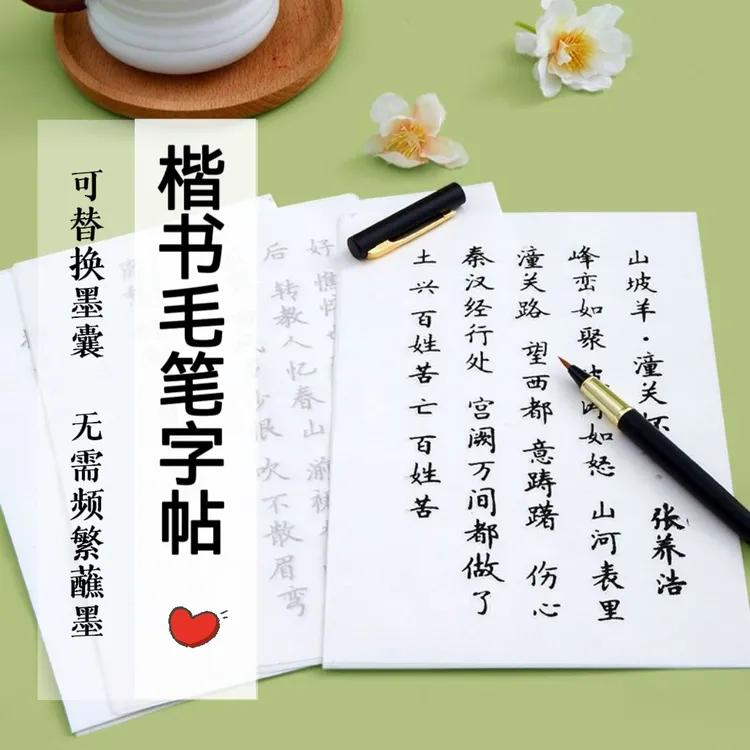 楷书毛笔字帖
可替换墨囊 无需频繁蘸墨
山坡羊·潼关
张养浩
峰峦如聚 如怒 山河表里
潼关路 望西都 意踌躇 伤心
秦汉经行处 宫阙万间都做了
土 兴百姓苦 亡百姓苦
好 憔
后 转教人忆春山 湔
恨 吹不散眉弯